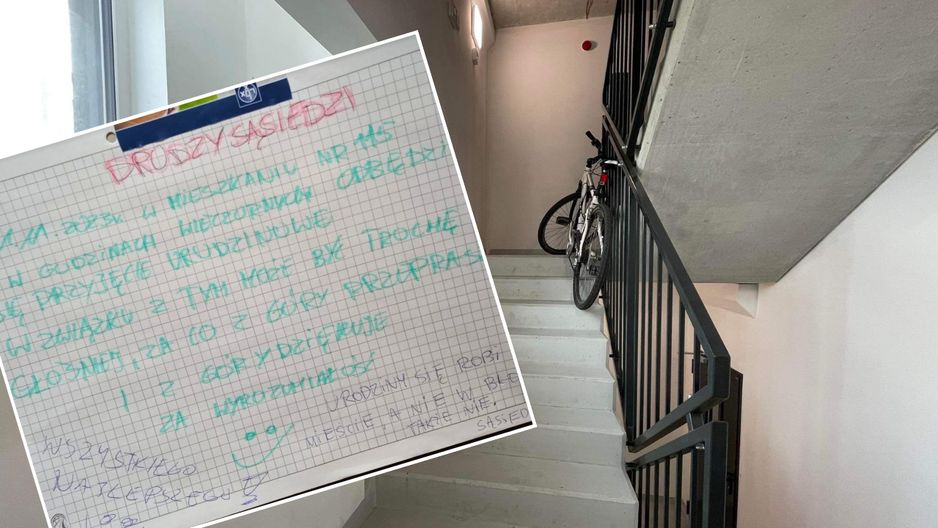 DRODZY SĄSIEDZI
11. 2023r. W MIESZKANIU NR 115
W GODZINACH WIECZORNYCH ODBĘDZI
SIĘ PRZYJĘCIE URODZINOWE
W ZWIĄZKU Z TYM MOŻE BYĆ TROCHĘ
GŁOŚNIEJ, ZA CO Z GÓRY PRZEPRAS
I Z GÓRY DZIĘKUJE
ZA WYROZUMIAŁOŚĆ
URODZINY SIĘ ROBI
MIEŚCIE, A NIE W BLO
TAKŻE NIE.
SĄSIED
WSZYSTKIEGO
NAJLEPSZEGO!